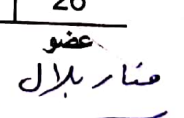 20
عضو
منار بلال